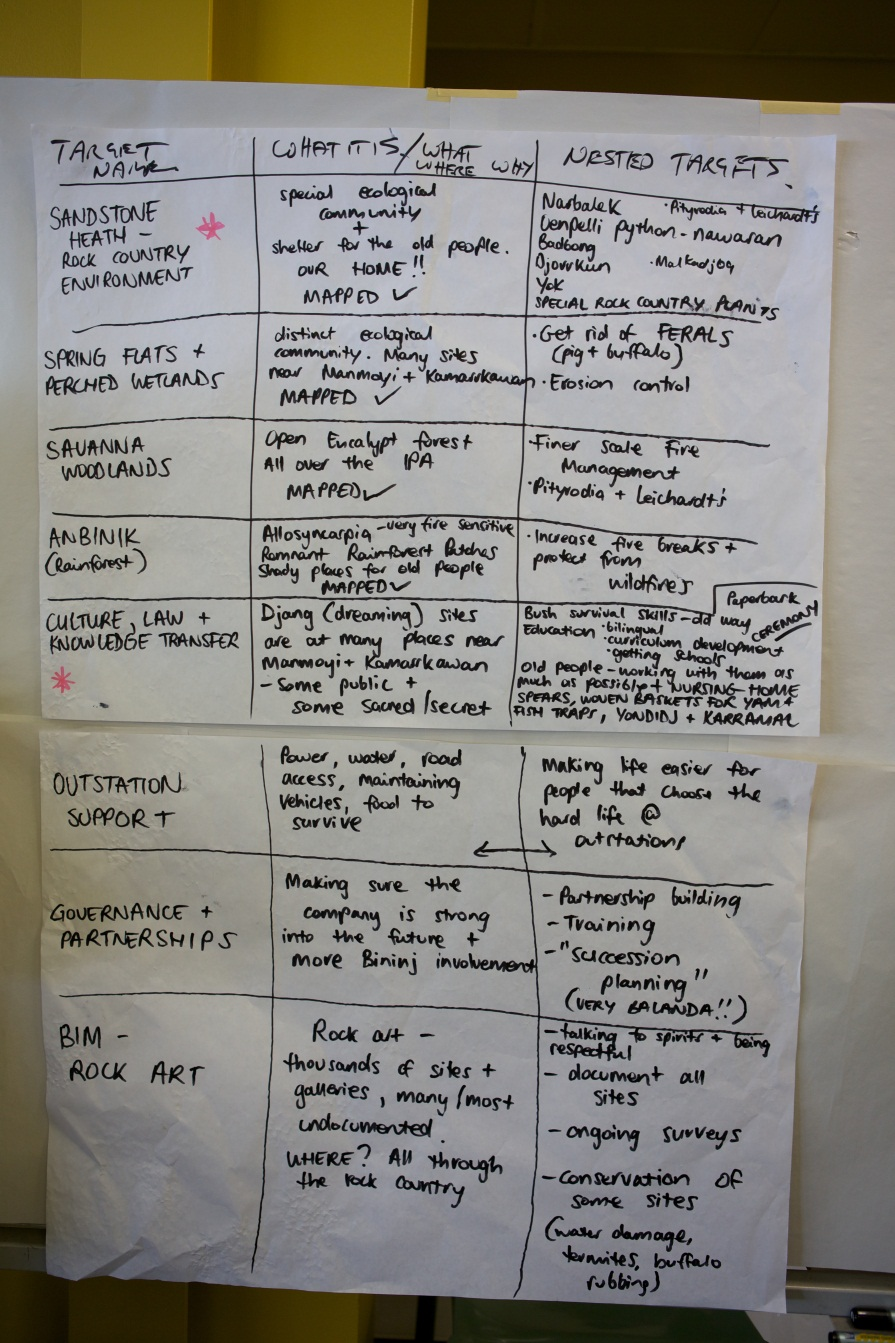 TARGET NAME
WHAT IT IS/WHAT WHERE WHY
NESTED TARGETS.
SANDSTONE
HEATH -
ROCK COUNTRY
ENVIRONMENT
special ecological
community
+
shelter for the old people.
OUR HOME!!
MAPPED ✓
Narbalek · Pityrodia + Leichardt's
Oenpelli python - nawaran
Badbong
Djorrkun · Malkadjbq
Yok
SPECIAL ROCK COUNTRY PLANTS
SPRING FLATS +
PERCHED WETLANDS
distinct ecological
community. Many sites
near Manmoyi + Kamarrkawan
MAPPED ✓
· Get rid of FERALS
(pig + buffalo)
· Erosion control
SAVANNA
WOODLANDS
Open Eucalypt forest
All over the IPA
MAPPED ✓
· Finer scale Fire
Management
· Pityrodia + Leichardt's
ANBINIK
(Rainforest)
Allosyncarpia - very fire sensitive
Remnant Rainforest Patches
Shady places for old people
MAPPED ✓
· Increase fire breaks +
protect from
wildfires
CULTURE, LAW +
KNOWLEDGE TRANSFER
Djang (dreaming) sites
are at many places near
Manmoyi + Kamarrkawan
- Some public +
some sacred/secret
Paperbark
Bush survival skills - old way CEREMONY
Education · bilingual
· curriculum development
· getting schools
old people - working with them as
much as possible + NURSING-HOME
SPEARS, WOVEN BASKETS FOR YAM +
FISH TRAPS, YONDIDJ + KARRAMAL
OUTSTATION
SUPPORT
Power, water, road
access, maintaining
vehicles, food to
survive
Making life easier for
people that choose the
hard life @
outstations
GOVERNANCE +
PARTNERSHIPS
Making sure the
company is strong
into the future +
more Bininj involvement
- Partnership building
- Training
- "succession
planning"
(VERY BALANDA!!)
BIM -
ROCK ART
Rock art -
thousands of sites +
galleries, many/most
undocumented.
WHERE? All through
the rock country
- talking to spirits + being
respectful
- document all
sites
- ongoing surveys
- conservation of
some sites
(water damage,
termites, buffalo
rubbing)